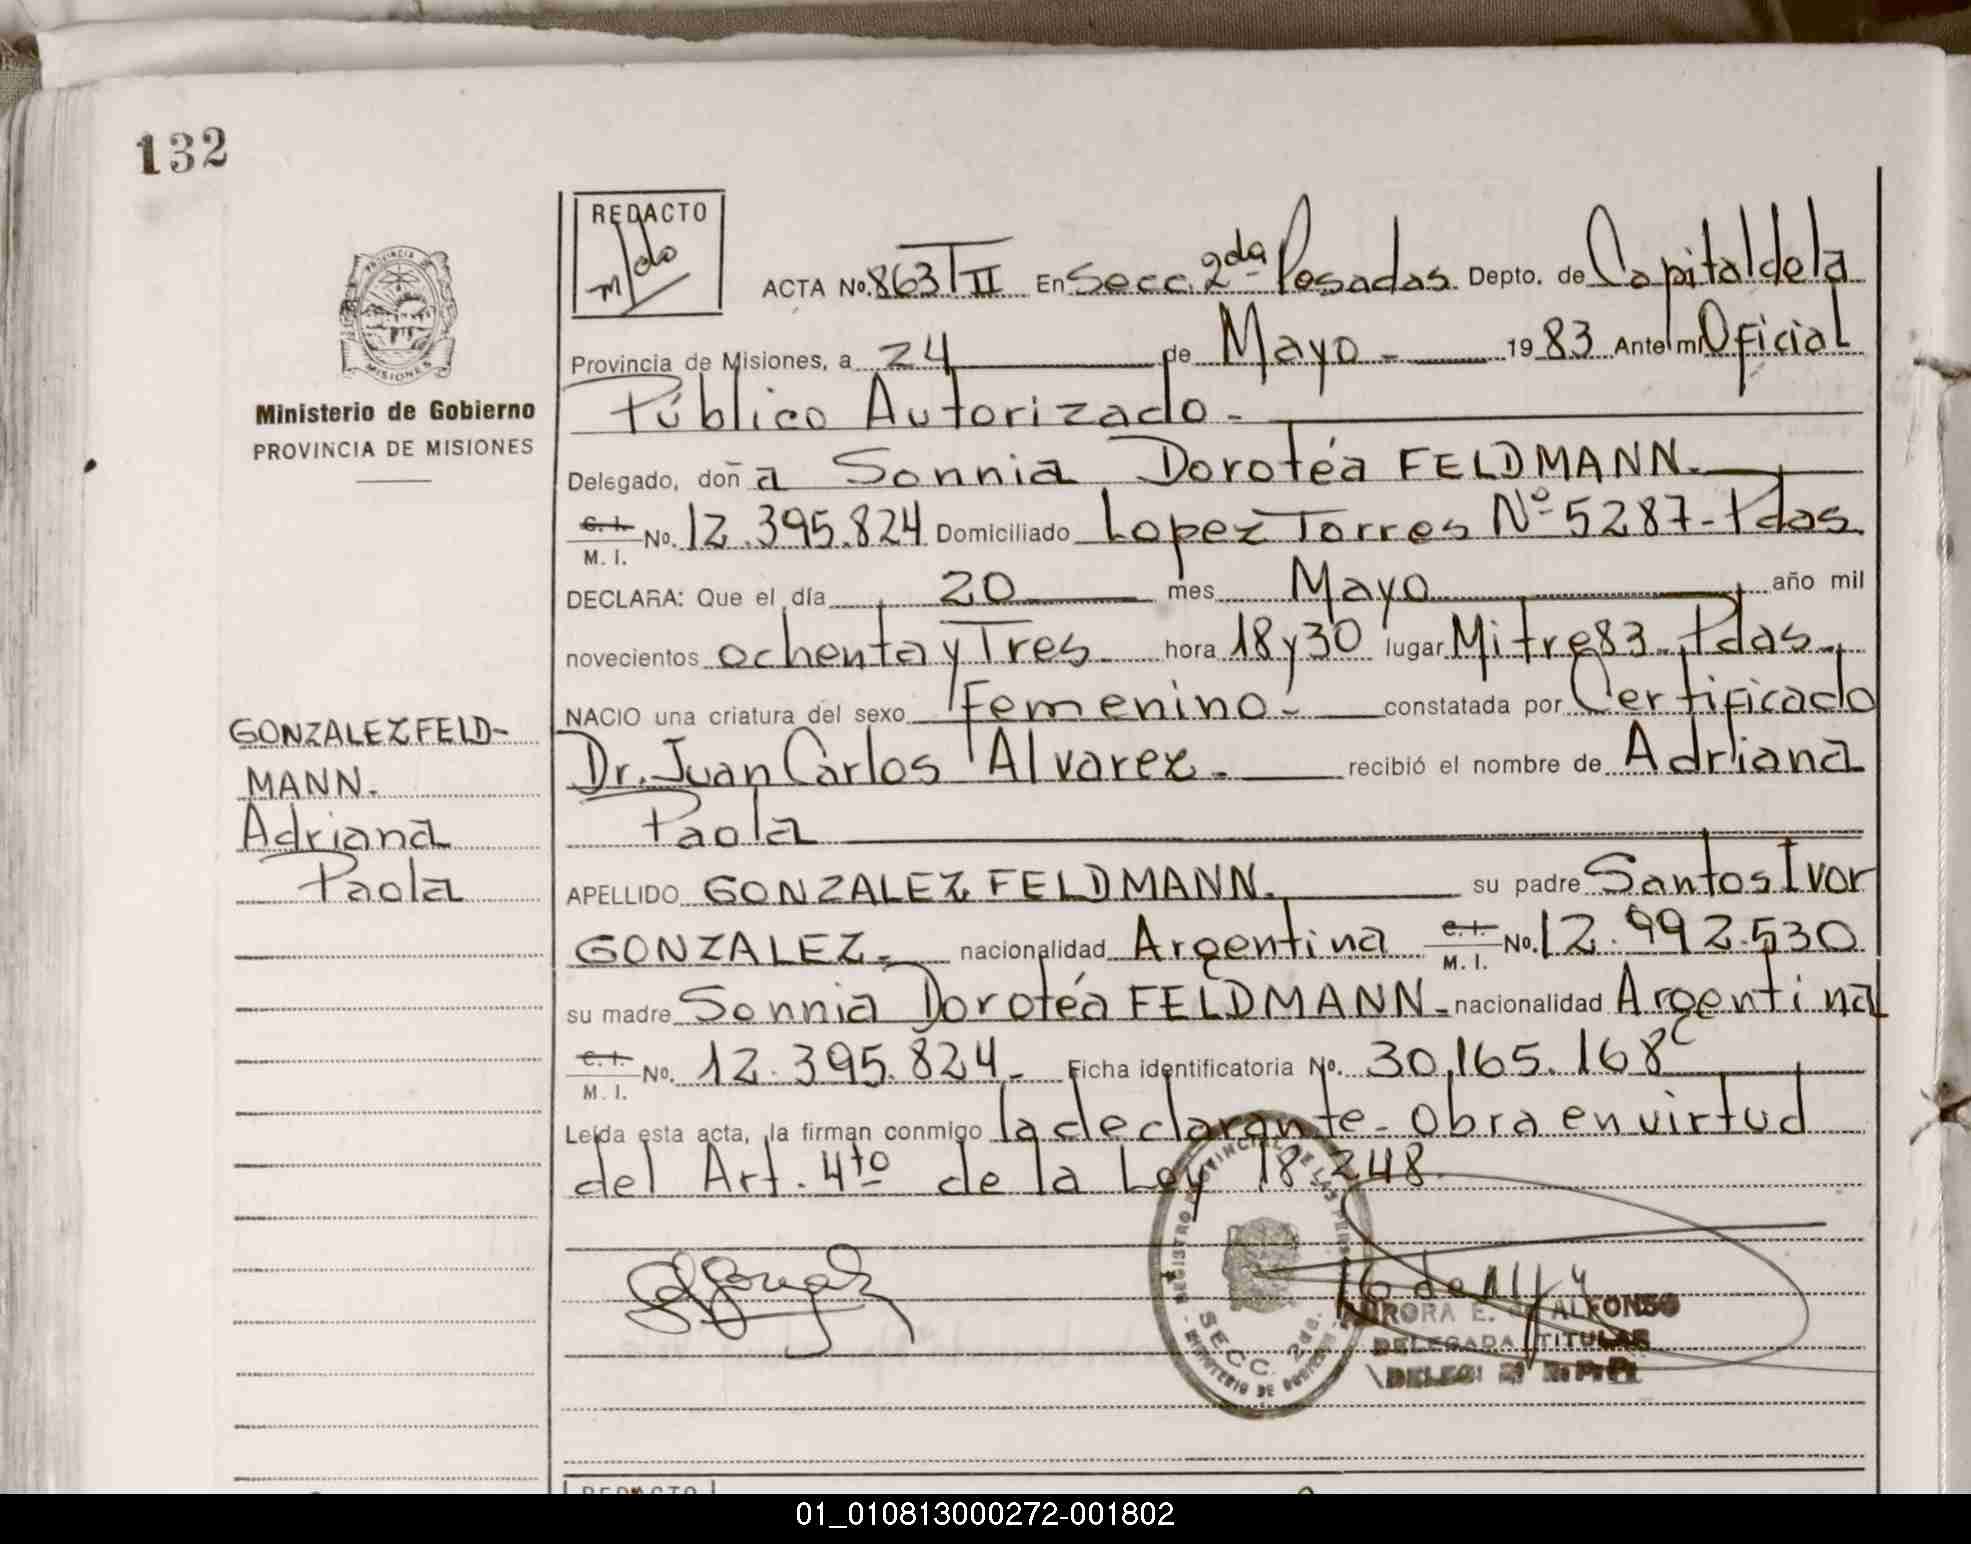 132
REDACTO
PROVINCIA
MISIONES
Ministerio de Gobierno
PROVINCIA DE MISIONES
ACTA No. 863 T II En Secc. 2da Posadas Depto. de Capital de la
Provincia de Misiones, a 24 de Mayo - 1983 Ante mi Oficial
Público Autorizado -
Delegado, doña Sonnia Dorotéa FELDMANN.
C. I. M. I. No. 12.395.824 Domiciliado Lopez Torres Nº 5287 - Pdas.
DECLARA: Que el día 20 mes Mayo año mil
novecientos ochenta y Tres hora 18 y 30 lugar Mitre 83 - Pdas.
NACIO una criatura del sexo Femenino - constatada por Certificado
Dr. Juan Carlos Alvarez - recibió el nombre de Adriana
Paola
APELLIDO GONZALEZ FELDMANN. su padre Santos Ivor
GONZALEZ. nacionalidad Argentina C. I. M. I. No. 12.992.530
su madre Sonnia Dorotéa FELDMANN - nacionalidad Argentina
C. I. M. I. No. 12.395.824 - Ficha identificatoria No. 30.165.168 C
Leída esta acta, la firman conmigo la declarante - Obra en virtud
del Art. 4to de la Ley 18.248.
GONZALEZ FELD-
MANN.
Adriana
Paola
REGISTRO PROVINCIAL DE LAS
SECC. 2da.
MINISTERIO DE GOBIERNO
AURORA E. DE ALFONSO
DELEGADA TITULAR
REDACTO
01_010813000272-001802